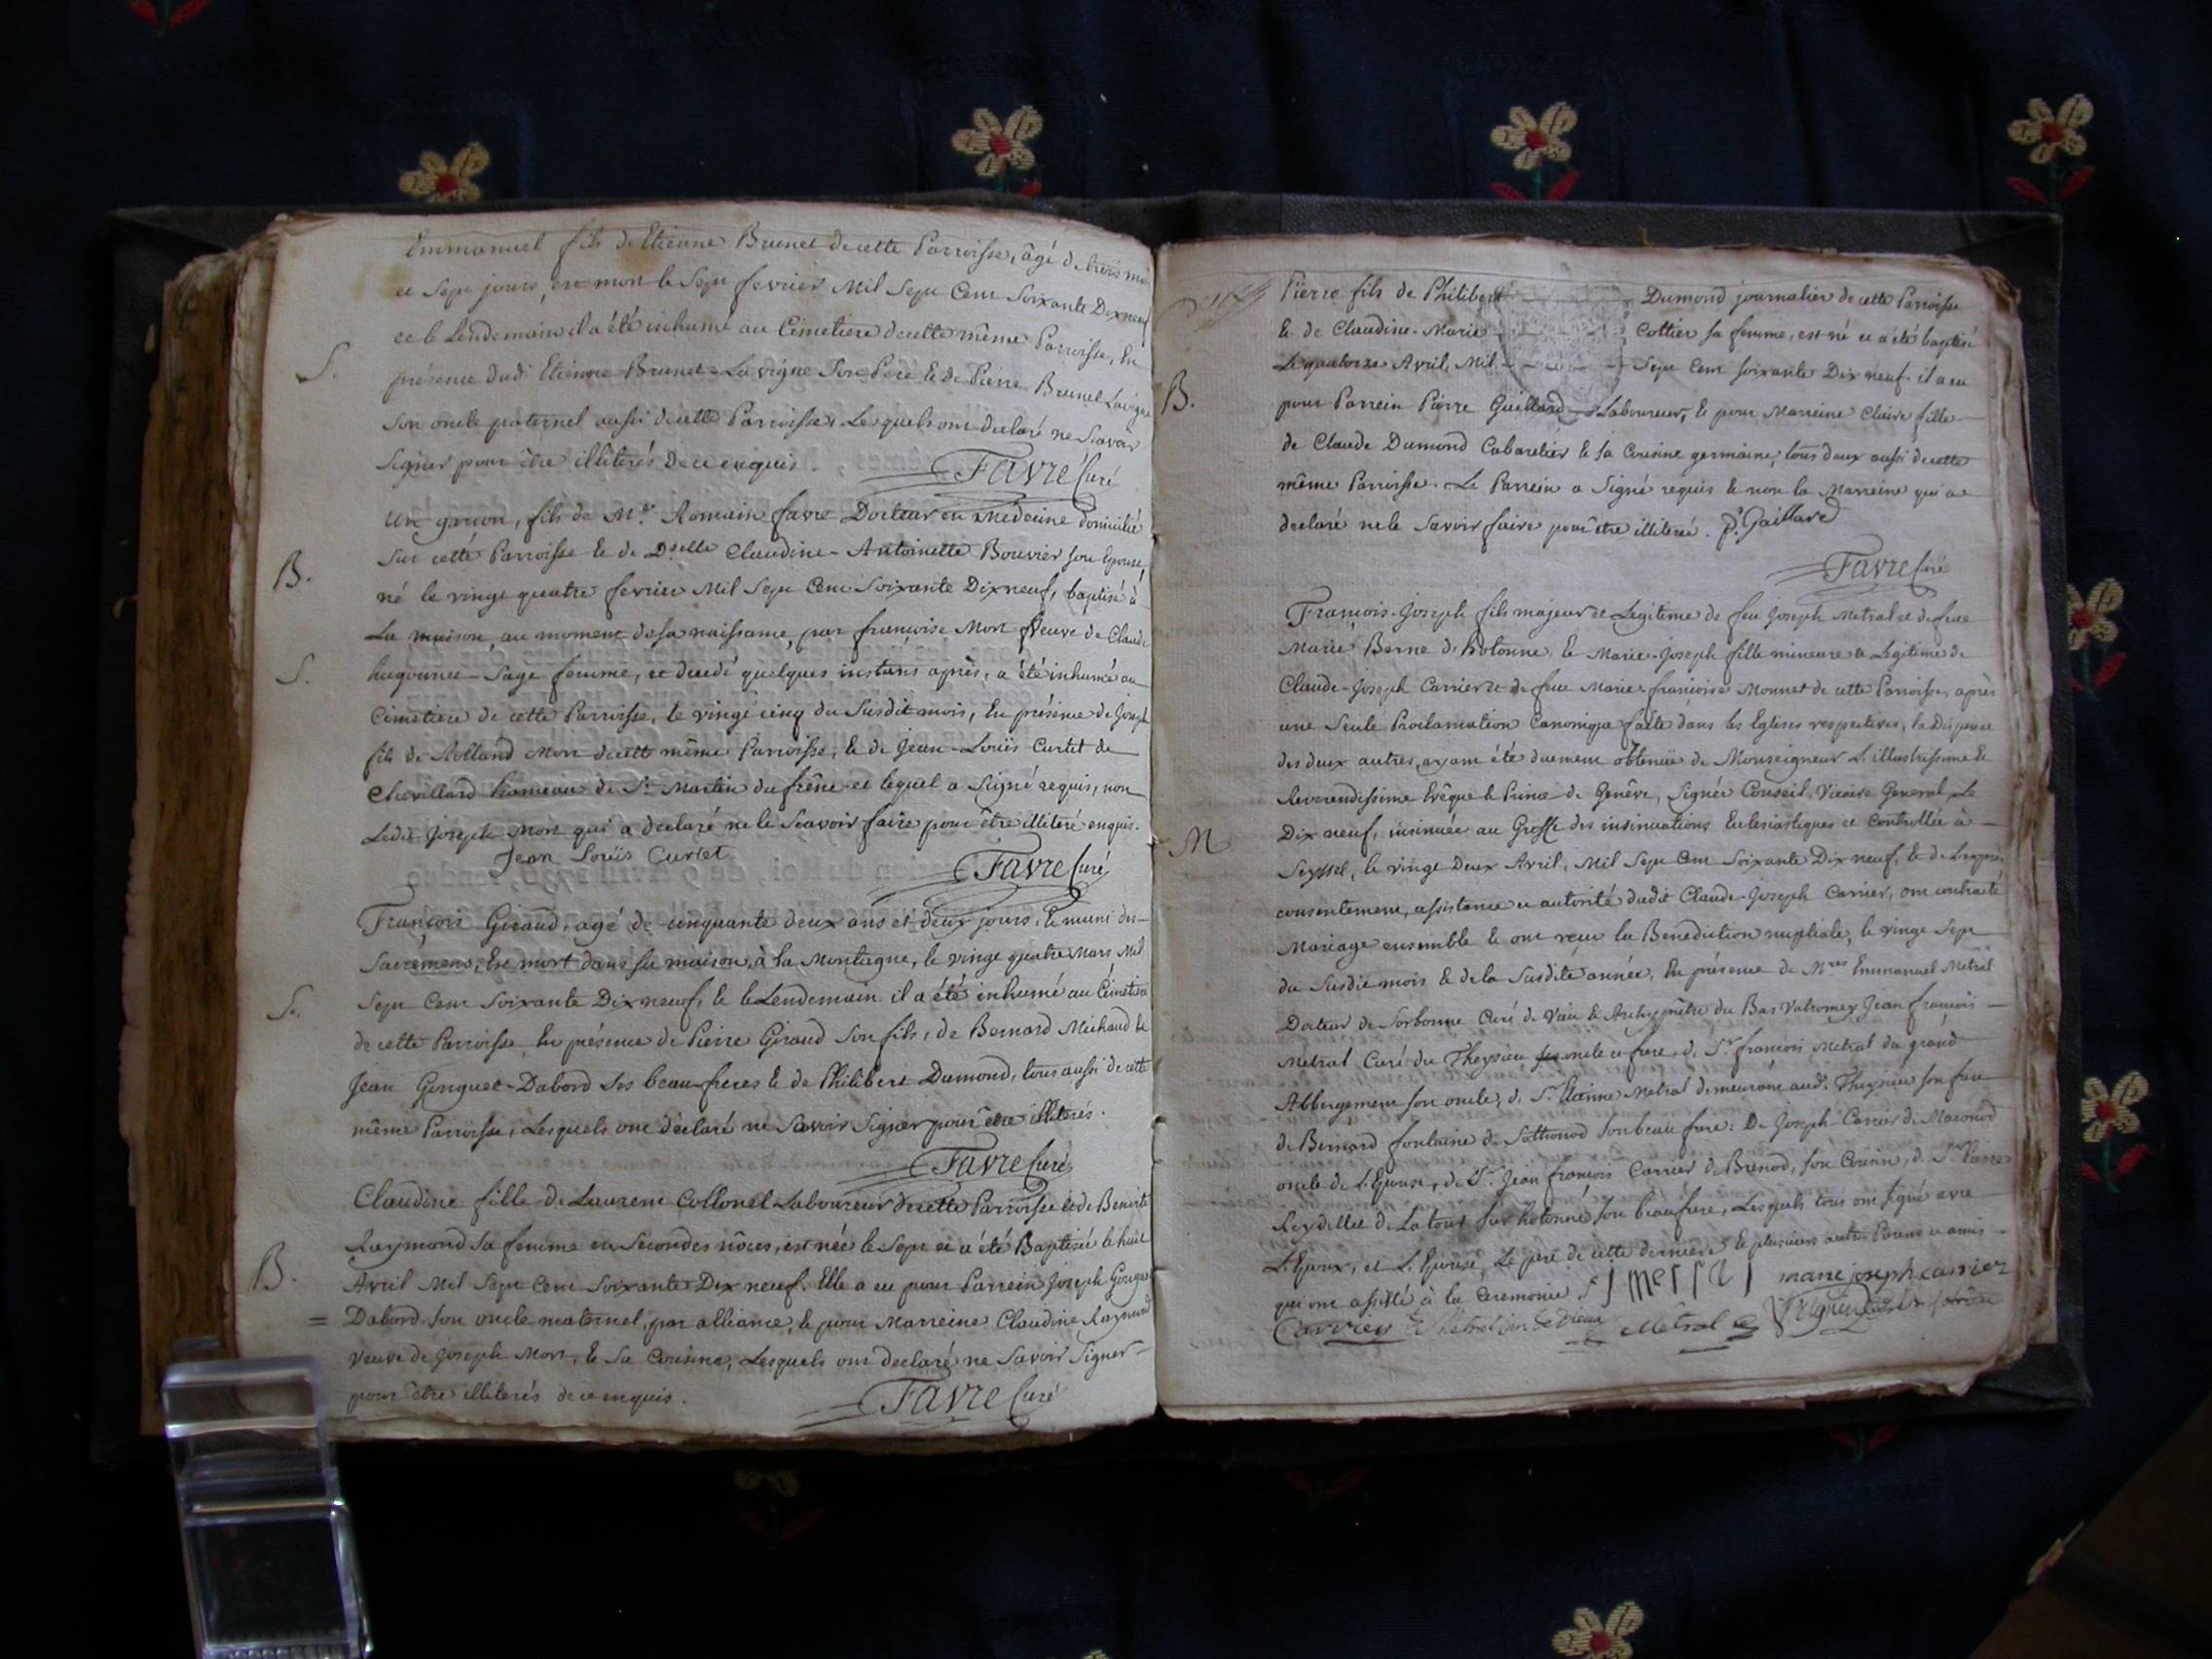 Emmanuel fils de Etienne Brunet de cette Parroisse, âgé de trois mois
et Sept jours, est mort le Sept fevrier Mil Sept Cent Soixante Dix neuf
et le Lendemain il a été inhumé au Cimetiere de cette même Parroisse, En
S.
présence dudt Etienne Brunet-Lavigne Son Pere & de Pierre Brunet Lavigne
Son oncle paternel aussi de cette Parroisse, Lesquels ont declaré ne Scavoir
Signer pour être illiterés de ce enquis.
Favre Curé
Un garcon, fils de Mr. Romain favre Docteur en Medecine domicilié
Sur cette Parroisse & de Dselle Claudine-Antoinette Bouvier son Epouse,
B.
né le vingt quatre fevrier Mil Sept Cent Soixante Dix neuf, baptisé à
La maison, au moment de sa naissance, par francoise Mort Veuve de Claude
S.
hugonnet Sage femme, et decedé quelques instans après, a été inhumé au
Cimetiere de cette Parroisse, le vingt cinq du Susdit mois, En présence de Joseph
fils de Rolland Mort de cette même Parroisse, & de Jean-Louis Curtet de
Chevillard hameau de St. Martin du frêne et lequel a Signé requis, non
Ledit Joseph Mort qui a declaré ne le Scavoir faire pour être illiteré enquis.
Jean Louïs Curtet
Favre Curé
François Giraud, agé de cinquante deux ans et deux jours, & muni des
Sacremens, Est mort dans sa maison, à la Montagne, le vingt quatre Mars Mil
S.
Sept Cent Soixante Dix neuf, & le Lendemain il a été inhumé au Cimetiere
de cette Parroisse, En présence de Pierre Giraud Son fils, de Bernard Michaud &
Jean Gonguet-Dabord Ses beau-freres & de Philibert Dumond, tous aussi de cette
même Parroisse, Lesquels ont déclaré ne Savoir Signer pour être illiterés.
Favre Curé
Claudine fille de Laurent Collonel Laboureur de cette Parroisse & de Benoite
Raymond Sa femme en Secondes nôces, est née le Sept et a été Baptisée le huit
B.
Avril Mil Sept Cent Soixante Dix neuf. Elle a eu pour Parrein Joseph Gonguet
= Dabord, Son oncle maternel, par alliance, & pour Marreine Claudine Raymond
Veuve de Joseph Mort, & Sa Cousine, Lesquels ont declaré ne Savoir Signer
pour être illiterés de ce enquis.
Favre Curé
Pierre fils de Philibert Dumond journalier de cette Parroisse
& de Claudine-Marie Cottier sa femme, est né et a été baptisé
Le quatorze Avril Mil Sept Cent soixante Dix neuf. il a eu
B.
pour Parrein Pierre Guillard Laboureur, & pour Marreine Claire fille
de Claude Dumond Cabaretier & sa Cousine germaine, tous deux aussi de cette
même Parroisse. Le Parrein a Signé requis & non la Marreine qui a
declaré ne le Savoir faire pour être illiteré. P. Gaillard
Favre Curé
François-Joseph fils majeur et Legitime de feu Joseph Metral et de feue
Marie Berne d'hotonne, & Marie-Joseph fille mineure & Legitime de
Claude-Joseph Carrier et de feue Marie-françoise Monnet de cette Parroisse, après
une Seule Proclamation Canonique faite dans les Eglises respectives, la Dispense
des deux autres, ayant été duement obtenüe de Monseigneur L'illustrissime &
Reverendissime Evêque & Prince de Genêve, Signée Conseil Vicaire General, Le
Dix neuf, insinuée au Greffe des insinuations Ecclesiastiques et Controllée à
M
Seyssel, le vingt Deux Avril, Mil Sept Cent Soixante Dix neuf, & de L'exprès
consentement, assistance et autorité dudit Claude-Joseph Carrier, ont contracté
Mariage ensemble & ont reçu la Benediction nuptiale, le vingt Sept
du Susdit mois & de la Susdite année, En présence de Mres Emmanuel Metral
Docteur de Sorbonne Curé de Vieu & Archiprêtre du Bas Valromey Jean françois
Metral Curé du Theysieu oncle et frere, de Sr. françois Metral du grand
Abbergement son oncle, de Sr. Etienne Metral demeurant audt. Theysieu son frere
de Bernard fontaine de Sothonod Son beau frere: De Joseph Carrier de Maconod
oncle de L'Epouse, de Sr. Jean françois Carrier de Brenod, son Cousin, de Sr. Pierre
Reydellet de Latour sur hotonne son beau frere, Lesquels tous ont signé avec
L'Epoux, et L'Epouse, Le pere de cette derniere & plusieurs autres Parens et amis
qui ont assisté à la Ceremonie. marie joseph carrier
Carrier Metral